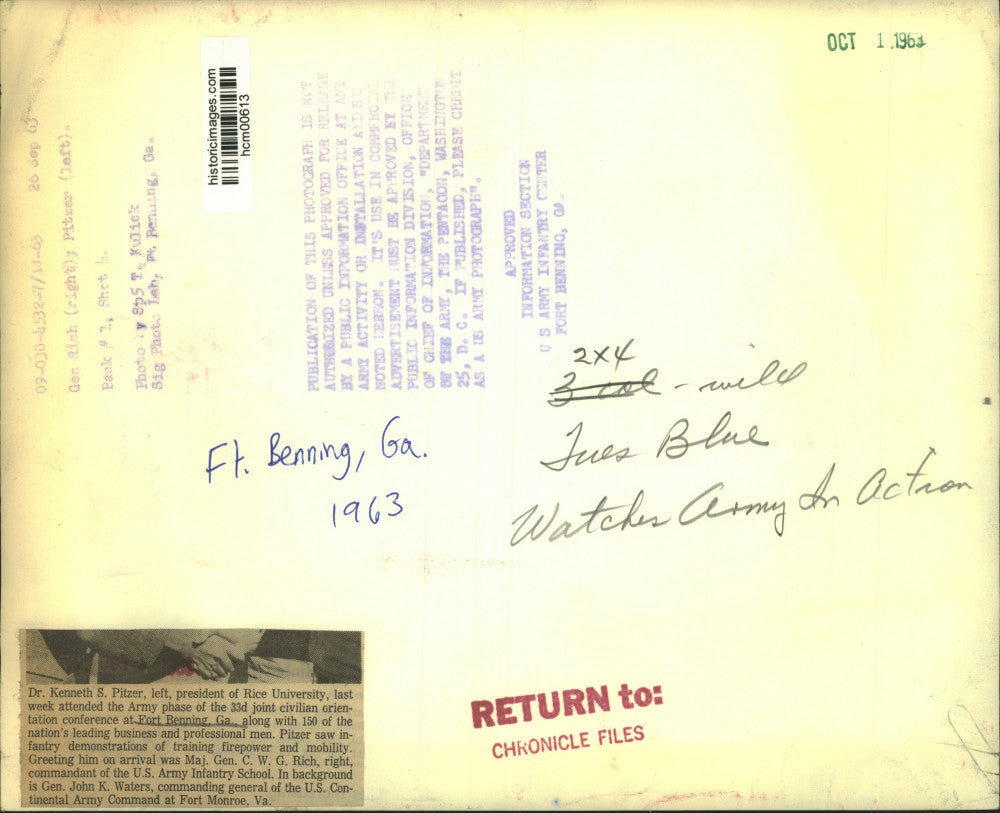 OCT 1 1963
historicimages.com
hcm00613
09-038-4532-7/AI-63 26 Sep 63
Gen Rich (right); Pitzer (left).
Pack # 1, Shot
Photo by Sp5 T. Kulick
Sig Photo Lab, Ft. Benning, Ga.
PUBLICATION OF THIS PHOTOGRAPH IS NOT
AUTHORIZED UNLESS APPROVED FOR RELEASE
BY A PUBLIC INFORMATION OFFICE AT ANY
ARMY ACTIVITY OR INSTALLATION AND SO
NOTED HEREON. IT'S USE IN COMMERCIAL
ADVERTISEMENT MUST BE APPROVED BY THE
PUBLIC INFORMATION DIVISION, OFFICE
OF CHIEF OF INFORMATION, "DEPARTMENT
OF THE ARMY, THE PENTAGON, WASHINGTON
25, D. C. IF PUBLISHED, PLEASE CREDIT
AS A US ARMY PHOTOGRAPH".
APPROVED
INFORMATION SECTION
U S ARMY INFANTRY CENTER
FORT BENNING, GA.
2x4
3 col - will
Tues Blue
Watches Army In Action
Ft. Benning, Ga.
1963
Dr. Kenneth S. Pitzer, left, president of Rice University, last
week attended the Army phase of the 33d joint civilian orien-
tation conference at Fort Benning, Ga., along with 150 of the
nation's leading business and professional men. Pitzer saw in-
fantry demonstrations of training firepower and mobility.
Greeting him on arrival was Maj. Gen. C. W. G. Rich, right,
commandant of the U.S. Army Infantry School. In background
is Gen. John K. Waters, commanding general of the U.S. Con-
tinental Army Command at Fort Monroe, Va.
RETURN to:
CHRONICLE FILES